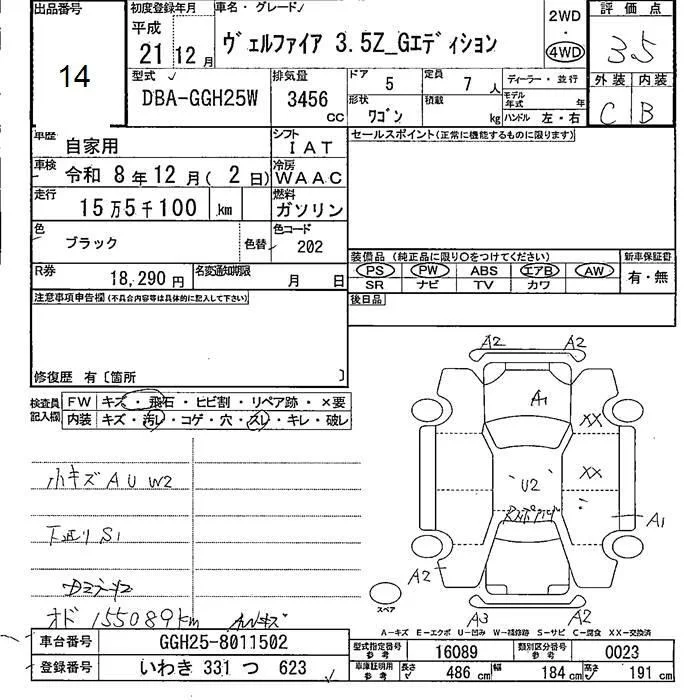 出品番号
14
初度登録年月
平成
21 12月
車名・グレード
ヴェルファイア 3.5Z_Gエディション
2WD
・
4WD
評価点
3.5
外装 内装
C B
型式
DBA-GGH25W
排気量
3456
cc
ドア 5
定員 7人
形状 ワゴン
積載 kg
ディーラー・並行
モデル年式 年
ハンドル 左・右
車歴
自家用
シフト
IAT
車検
令和 8年12月(2日)
冷房
WAAC
走行
15万5千100 km
燃料
ガソリン
色
ブラック
色替
色コード
202
R券
18,290 円
名変通知期限
月 日
セールスポイント(正常に機能するものに限ります)
装備品(純正品に限り○をつけてください)
PS PW ABS エアB AW
SR ナビ TV カワ
新車保証書
有・無
後日品
注意事項申告欄(不具合内容等は具体的に記入して下さい)
修復歴 有〔箇所 〕
検査員記入欄
FW キズ・飛石・ヒビ割・リペア跡・×要
内装 キズ・汚レ・コゲ・穴・スレ・キレ・破レ
小キズ A U W2
下廻り S1
オド 155089km
A2 A2
A1
XX
XX
U2
A1
A2
A3 A2
スペア
A-キズ E-エクボ U-凹み W-補修跡 S-サビ C-腐食 XX-交換済
車台番号
GGH25-8011502
登録番号
いわき 331 つ 623
型式指定番号
参考
16089
類別区分番号
参考
0023
車庫証明用
参考
長さ 486 cm
幅 184 cm
高さ 191 cm